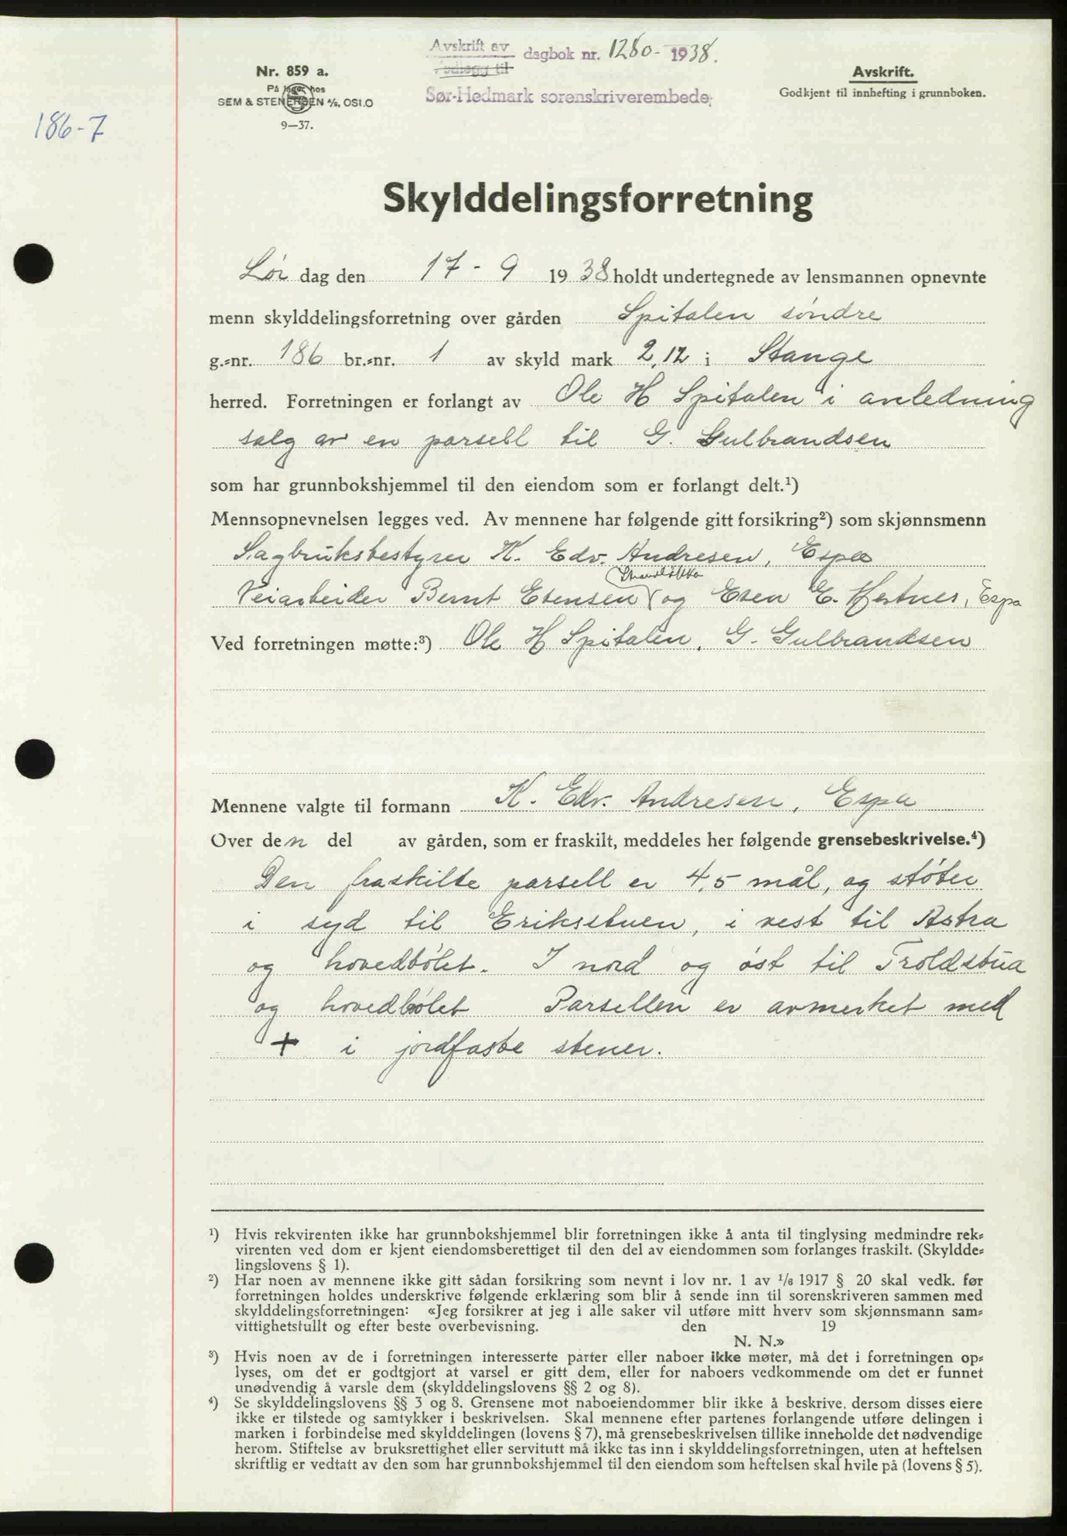 Avskrift av
Vedlegg til
dagbok nr. 1280- 1938.
Sør-Hedmark sorenskriverembede.
Nr. 859 a.
På lager hos
SEM & STENERSEN A/S, OSLO
9—37.
Avskrift.
Godkjent til innhefting i grunnboken.
186-7
Skylddelingsforretning
Lør dag den 17 - 9 1938 holdt undertegnede av lensmannen opnevnte
menn skylddelingsforretning over gården Spitalen søndre
g.-nr. 186 br.-nr. 1 av skyld mark 2,12 i Stange
herred. Forretningen er forlangt av Ole H Spitalen i anledning
salg av en parsell til G. Gulbrandsen
som har grunnbokshjemmel til den eiendom som er forlangt delt.¹)
Mennsopnevnelsen legges ved. Av mennene har følgende gitt forsikring²) som skjønnsmenn
Sagbruksbestyrer K. Edv. Andresen, Espa
Veiarbeider Bernt Evensen og Even E. Hestnes, Espa
Ved forretningen møtte:³) Ole H Spitalen, G. Gulbrandsen
Mennene valgte til formann K. Edv. Andresen, Espa
Over den del av gården, som er fraskilt, meddeles her følgende grensebeskrivelse.⁴)
Den fraskilte parsell er 4,5 mål, og støter
i syd til Eriksstuen, i vest til Astra
og hovedbølet. I nord og øst til Troldstua
og hovedbølet Parsellen er avmerket med
+ i jordfaste stener.
¹) Hvis rekvirenten ikke har grunnbokshjemmel blir forretningen ikke å anta til tinglysing medmindre rek-
virenten ved dom er kjent eiendomsberettiget til den del av eiendommen som forlanges fraskilt. (Skyldde-
lingslovens § 1).
²) Har noen av mennene ikke gitt sådan forsikring som nevnt i lov nr. 1 av 1/6 1917 § 20 skal vedk. før
forretningen holdes underskrive følgende erklæring som blir å sende inn til sorenskriveren sammen med
skylddelingsforretningen: «Jeg forsikrer at jeg i alle saker vil utføre mitt hverv som skjønnsmann sam-
vittighetsfullt og efter beste overbevisning. den 19
N. N.»
³) Hvis noen av de i forretningen interesserte parter eller naboer ikke møter, må det i forretningen op-
lyses, om det er godtgjort at varsel er gitt dem, eller for naboers vedkommende om det er funnet
unødvendig å varsle dem (skylddelingslovens §§ 2 og 8).
⁴) Se skylddelingslovens §§ 3 og 8. Grensene mot naboeiendommer blir ikke å beskrive, dersom disses eiere
ikke er tilstede og samtykker i beskrivelsen. Skal mennene efter partenes forlangende utføre delingen i
marken i forbindelse med skylddelingen (lovens § 7), må grensebeskrivelsen tillike inneholde det nødvendige
herom. Stiftelse av bruksrettighet eller servitutt må ikke tas inn i skylddelingsforretningen, uten at heftelsen
skriftlig er vedtatt av den som har grunnbokshjemmel til den eiendom som heftelsen skal hvile på (lovens § 5).